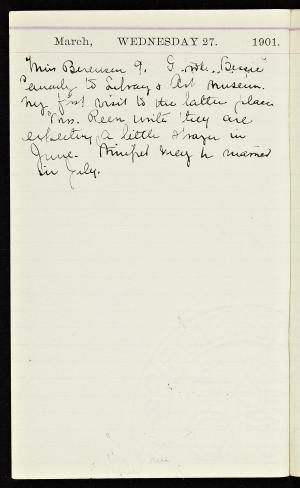 March, WEDNESDAY 27. 1901.
Miss Berenson & G. Bessie
to Library & Art Museum.
My first visit to the latter place
Mrs. writes they are
expecting a little stranger in
June. may be married
in July.